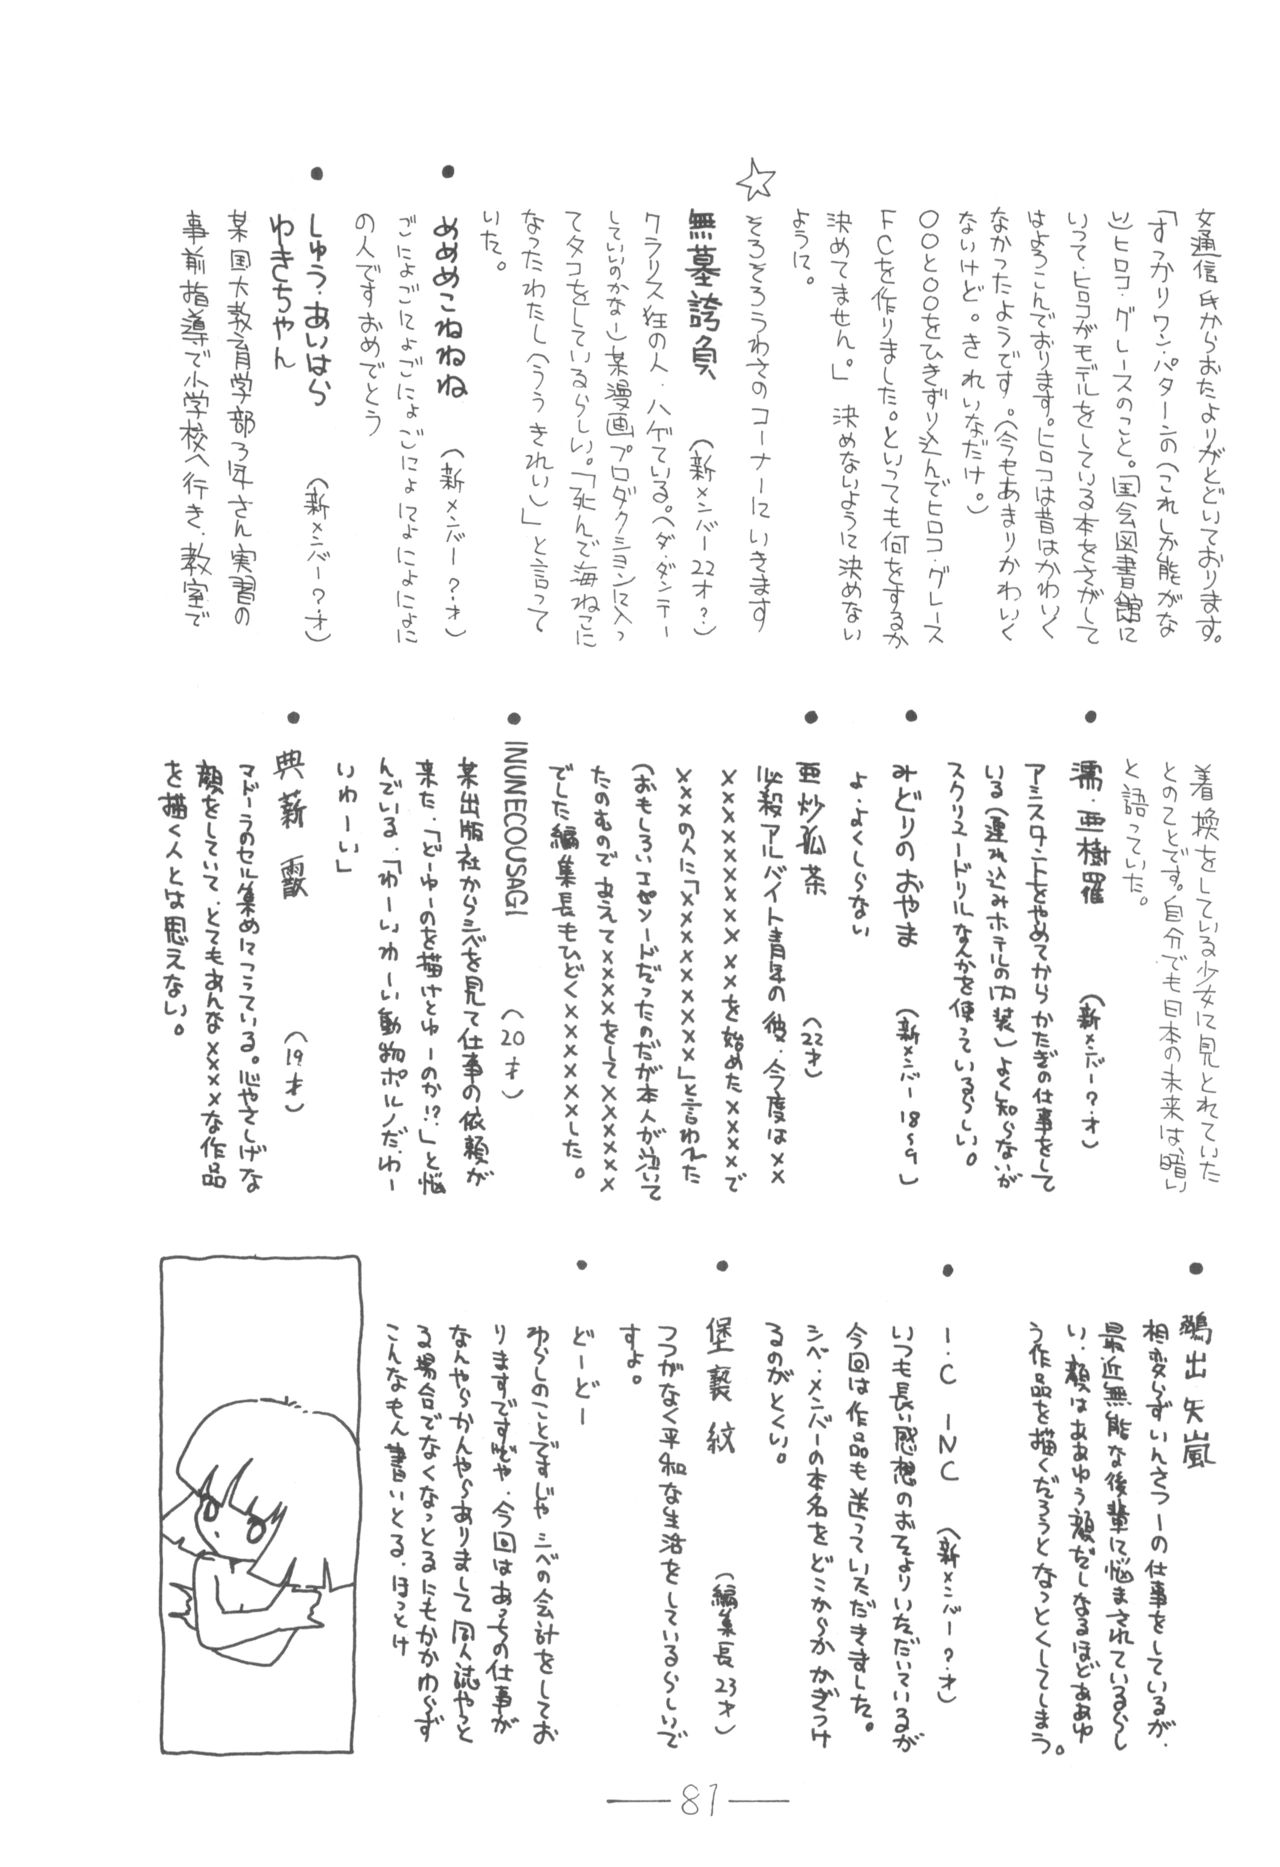 女通信氏からおたよりがとどいております。
「すっかりワンパターンの(これしか能がな
い)ヒロコ・グレースのこと。国会図書館に
いって・ヒロコがモデルをしている本をさがして
はよろこんでおります。ヒロコは昔はかわいく
なかったようです。(今もあまりかわいく
ないけど。きれいなだけ。)
○○と○○をひきずり込んでヒロコ・グレース
FCを作りました。といっても何をするか
決めてません。」 決めないように決めない
ように。
☆ そろそろうわさのコーナーにいきます
無墓誇負 (新メンバー22才?)
クラリス狂の人・ハゲている。(ダ・ダンテー
していいのかなー)某漫画プロダクションに入っ
てタコをしているらしい。「死んで海ねこに
なったわたし(ううきれい)」と言って
いた。
● めめめこねねね (新メンバー?・才)
ごにょごにょごにょごにょにょにょにょに
の人ですおめでとう
● しゅう・あいはら (新メンバー?・才)
わきちゃん
某国大教育学部3年さん実習の
事前指導で小学校へ行き・教室で
着換をしている少女に見とれていた
とのことです。自分でも日本の未来は暗い
と語っていた。
● 濡・亜樹羅 (新メンバー?・才)
アシスタントをやめてからかたぎの仕事をして
いる(連れ込みホテルの内装)よく知らないが
スクリュードリルなんかを使っているらしい。
● みどりのおやま (新メンバー18〜9)
よ・よくしらない
● 亜炒弧茶 (22才)
必殺アルバイト青年の彼・今度は××
××××××××××を始めた××××で
×××の人に「×××××××××」と言われた
(おもしろいエピソードだったのだが本人が泣いて
たのむので あえて××××をして××××××
でした編集長もひどく××××××した。
● INUNECOUSAGI (20才)
某出版社からシベを見て仕事の依頼が
来た・「どーゆーのを描けとゆーのか!?」と悩
んでいる・「わーいわーい動物ポルノだ・わー
いわーい」
● 典薪 (19才)
マドーラのセル集めにこっている。心やさしげな
顔をしていて・とてもあんな××××な作品
を描く人とは思えない。
● 出 矢嵐
相変らずいんさつーの仕事をしているが・
最近無能な後輩に悩まされているらし
い・顔はああゆう顔だしなるほどああゆ
う作品を描くだろうとなっとくしてしまう。
● I・C INC (新メンバー?・才)
いつも長い感想のおてよりいただいているが
今回は作品も送っていただきました。
シベ・メンバーの本名をどこからかかぎつけ
るのがとくい。
● 堡 褻 紋 (編集長23才)
つつがなく平和な生活をしているらしいで
すよ。
● どーどー
わらしのことですじゃ シベの会計をしてお
りますですじゃ・今回はあっちの仕事が
なんやらかんやらありまして同人誌やっと
る場合でなくなっとるにもかかわらず
こんなもん書いとる・ほっとけ
— 81 —